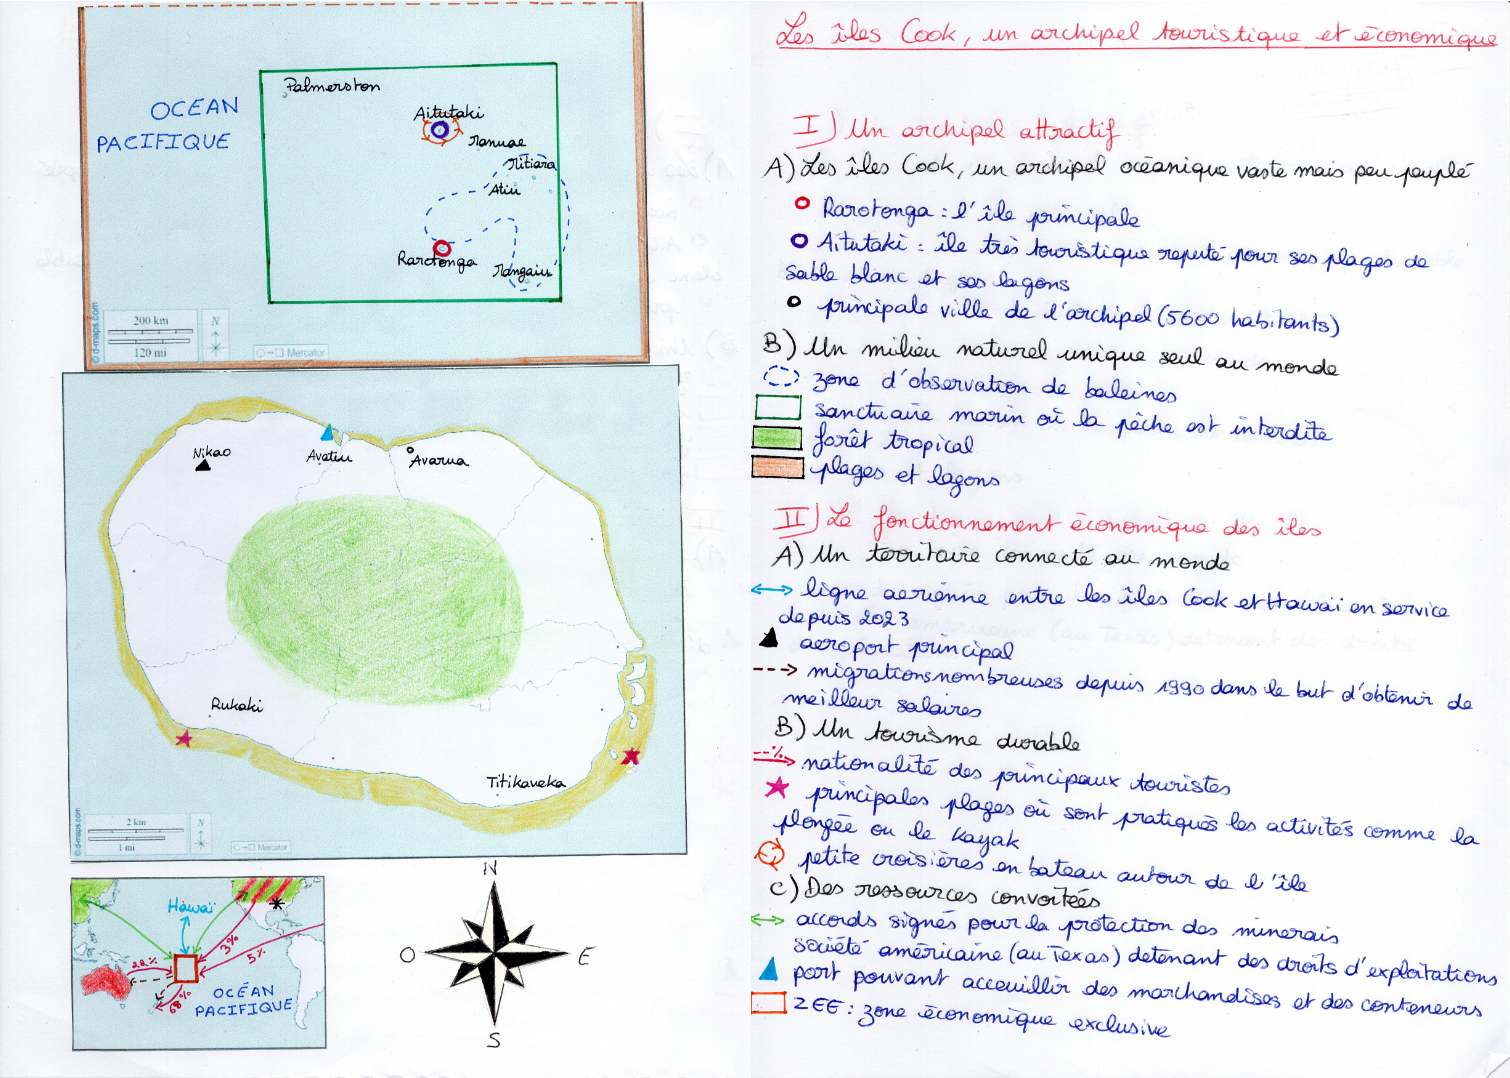 OCEAN
PACIFIQUE
Palmerston
Aitutaki
Manuae
Mitiara
Atiu
Rarotonga
Mangaia
200 km
120 mi
N
Mercator
© d-maps.com
Nikao
Avatiu
Avarua
Rukaki
Titikaveka
2 km
1 mi
N
Mercator
© d-maps.com
Hawaï
3%
5%
22%
68%
OCÉAN
PACIFIQUE
N
O
E
S
Les îles Cook, un archipel touristique et économique
I) Un archipel attractif
A) Les îles Cook, un archipel océanique vaste mais peu peuplé
Rarotonga : l'île principale
Aitutaki : île très touristique reputé pour ses plages de
sable blanc et ses lagons
principale ville de l'archipel (5600 habitants)
B) Un milieu naturel unique seul au monde
zone d'observation de baleines
sanctuaire marin où la pêche est interdite
forêt tropical
plages et lagons
II) Le fonctionnement économique des îles
A) Un territoire connecté au monde
ligne aerienne entre les îles Cook et Hawaï en service
depuis 2023
aeroport principal
migrations nombreuses depuis 1990 dans le but d'obtenir de
meilleur salaires
B) Un tourisme durable
--%
nationalité des principaux touristes
principales plages où sont pratiqués les activités comme la
plongée ou le kayak
petite croisières en bateau autour de l'île
C) Des ressources convoitées
accords signés pour la protection des minerais
société américaine (au Texas) detenant des droits d'exploitations
port pouvant acceuillir des marchandises et des conteneurs
ZEE : zone économique exclusive